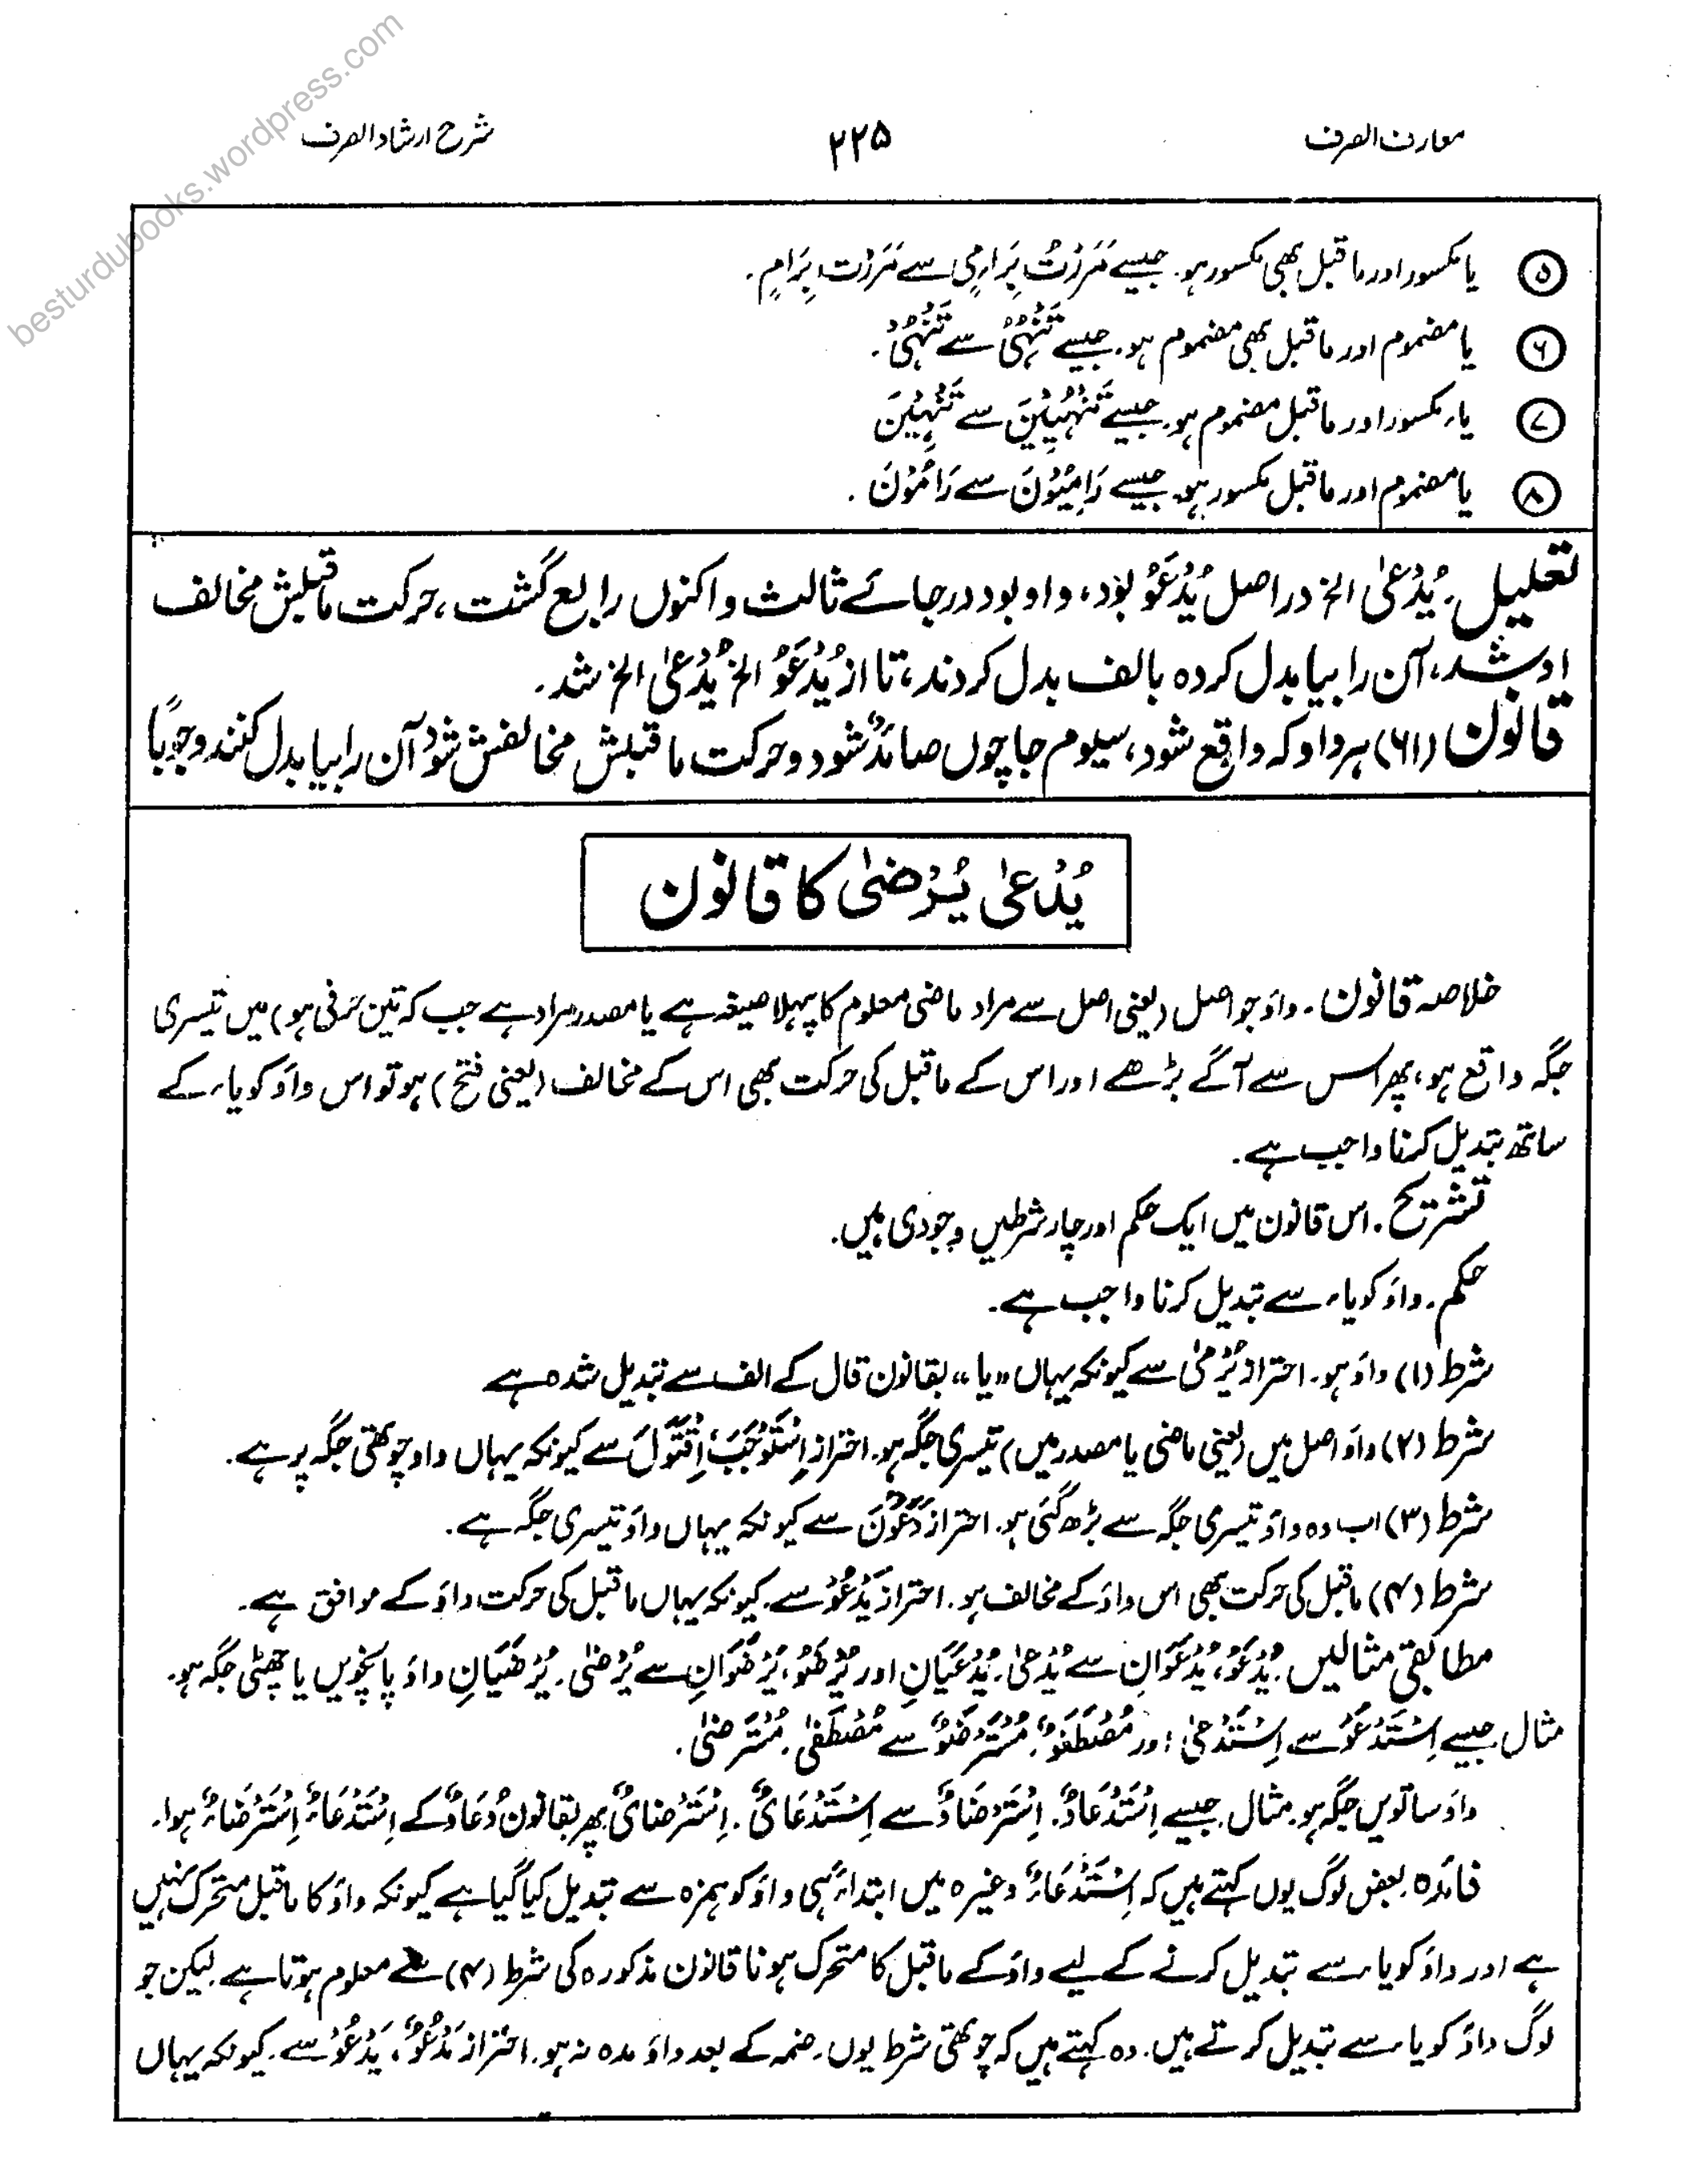 besturdubooks.wordpress.com
معارف الصرف
۲۲۵
شرح ارشاد الصرف
۵ یا مکسور اور ماقبل بھی مکسور ہو۔ جیسے مَرَرْتُ بِرَامِيٍ سے مَرَرْتُ بِرَامٍ۔
۶ یا مضموم اور ماقبل بھی مضموم ہو۔ جیسے تَنْهُيُ سے تَنْهُيْ۔
۷ یاء مکسور اور ماقبل مضموم ہو۔ جیسے تَنْهُيِيْنَ سے تَنْهِيْنَ
۸ یا مضموم اور ماقبل مکسور ہو۔ جیسے رَامِيُوْنَ سے رَامُوْنَ۔
تعلیل۔ يُدْعىٰ الخ در اصل يُدْعَوُ بود، واو بود در جائے ثالث و اکنوں رابع گشت، حرکت ماقبلش مخالف
او شد، آن را بیا بدل کردہ بالف بدل کردند، تا از يُدْعَوُ الخ يُدْعىٰ الخ شد۔
قانون (۶۱) ہر واو کہ واقع شود، سیوم جا چوں صائد شود و حرکت ماقبلش مخالفش شود آن را بیا بدل کنند وجوبًا
يُدْعىٰ يُرْضىٰ کا قانون
خلاصہ قانون۔ واؤ جو اصل (یعنی اصل سے مراد ماضی معلوم کا پہلا صیغہ ہے یا مصدر مراد ہے جب کہ تین حرفی ہو) میں تیسری
جگہ واقع ہو، پھر اس سے آگے بڑھے اور اس کے ماقبل کی حرکت بھی اس کے مخالف (یعنی فتح) ہو تو اس واؤ کو یاء کے
ساتھ تبدیل کرنا واجب ہے۔
تشریح۔ اس قانون میں ایک حکم اور چار شرطیں وجودی ہیں۔
حکم۔ واؤ کو یاء سے تبدیل کرنا واجب ہے۔
شرط (۱) واؤ ہو۔ احتراز يُرْمىٰ سے کیونکہ یہاں "یا" بقانون قال کے الف سے تبدیل شدہ ہے
شرط (۲) واؤ اصل میں (یعنی ماضی یا مصدر میں) تیسری جگہ ہو۔ احتراز اِسْتَوْجَبَ، اِقْتَوَلَ سے کیونکہ یہاں واو چوتھی جگہ پر ہے۔
شرط (۳) اب وہ واؤ تیسری جگہ سے بڑھ گئی ہو۔ احتراز دَعَوْنَ سے کیونکہ یہاں واؤ تیسری جگہ ہے۔
شرط (۴) ماقبل کی حرکت بھی اس واؤ کے مخالف ہو۔ احتراز يَدْعُوْ سے۔ کیونکہ یہاں ماقبل کی حرکت واؤ کے موافق ہے۔
مطابقی مثالیں۔ يُدْعَوُ، يُدْعَوَانِ سے يُدْعىٰ۔ يُدْعَيَانِ اور يُرْضَوُ، يُرْضَوَانِ سے يُرْضىٰ۔ يُرْضَيَانِ واؤ پانچویں یا چھٹی جگہ ہو۔
مثال جیسے اِسْتَدْعَوَ سے اِسْتَدْعىٰ اور مُصْطَفَوٌ۔ مُسْتَرْضَوٌ سے مُصْطَفىٰ۔ مُسْتَرْضىٰ۔
واؤ ساتویں جگہ ہو۔ مثال جیسے اِسْتَدْعَاوٌ۔ اِسْتَرْضَاوٌ سے اِسْتَدْعَايٌ۔ اِسْتَرْضَايٌ پھر بقانون دُعَاوٌ کے اِسْتَدْعَاءٌ اِسْتَرْضَاءٌ ہوا۔
فائدہ۔ بعض لوگ یوں کہتے ہیں کہ اِسْتَدْعَاءٌ وغیرہ میں ابتداءً ہی واؤ کو ہمزہ سے تبدیل کیا گیا ہے کیونکہ واؤ کا ماقبل متحرک نہیں
ہے اور واؤ کو یاء سے تبدیل کرنے کے لیے واؤ کے ماقبل کا متحرک ہونا قانون مذکورہ کی شرط (۴) سے معلوم ہوتا ہے۔ لیکن جو
لوگ واؤ کو یاء سے تبدیل کرتے ہیں۔ وہ کہتے ہیں کہ چوتھی شرط یوں۔ ضمہ کے بعد واؤ مدہ نہ ہو۔ احتراز مَدْعُوْوٌ، يَدْعُوْ سے۔ کیونکہ یہاں